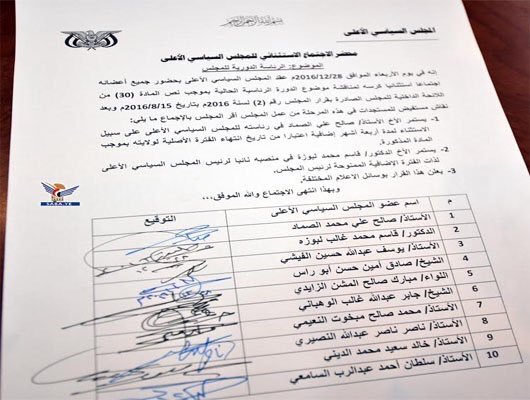 بسم الله الرحمن الرحيم
المجلس السياسي الأعلى
محضر الاجتماع الاستثنائي للمجلس السياسي الأعلى
الموضوع: الرئاسة الدورية للمجلس
إنه في يوم الأربعاء الموافق 2016/12/28م عقد المجلس السياسي الأعلى بحضور جميع أعضائه
اجتماعا استثنائيا كرسه لمناقشة موضوع الدورة الرئاسية الحالية بموجب نص المادة (30) من
اللائحة الداخلية للمجلس الصادرة بقرار المجلس رقم (2) لسنة 2016م بتاريخ 2016/8/15م وبعد
نقاش مستفيض للمستجدات في هذه المرحلة من عمل المجلس أقر المجلس بالإجماع ما يلي:
1- يستمر الأخ الأستاذ/ صالح علي الصماد في رئاسته للمجلس السياسي الأعلى على سبيل
الاستثناء لمدة أربعة أشهر إضافية اعتبارا من تاريخ انتهاء الفترة الأصلية لولايته بموجب
المادة المذكورة.
2- يستمر الأخ الدكتور/ قاسم محمد لبوزة في منصبه نائبا لرئيس المجلس السياسي الأعلى
لذات الفترة الإضافية الممنوحة لرئيس المجلس.
3- يعلن هذا القرار بوسائل الإعلام المختلفة
وبهذا انتهى الاجتماع والله الموفق،،،
م اسم عضو المجلس السياسي الأعلى التوقيع
1 الأستاذ/ صالح علي محمد الصماد
2 الدكتور/ قاسم محمد غالب لبوزه
3 الأستاذ/ يوسف عبدالله حسين الفيشي
4 الشيخ/ صادق أمين حسن أبو راس
5 اللواء/ مبارك صالح المشن الزايدي
6 الشيخ/ جابر عبدالله غالب الوهباني
7 الأستاذ/ محمد صالح مبخوت النعيمي
8 الأستاذ/ ناصر ناصر عبدالله النصيري
9 الأستاذ/ خالد سعيد محمد الديني
10 الأستاذ/ سلطان أحمد عبدالرب السامعي
SABA.YE